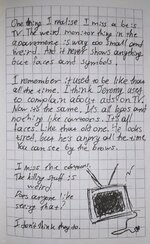 One thing I realise I miss a bit is
TV. The weird monitor thing in the
apartment is way too small and
weird. And it never shows anything
but faces and symbols.
I remember it used to be like that
all the time. I think Jeremy used
to complain about ads on TV.
Now its the same. It's all ads and
nothing like cartoons. It's all
faces. Like that old one. He looks
tired, but he's angry all the time.
You can see by the brows.
I miss the cartoons.
The killing stuff is
weird
Does anyone like
seeing that?
I don't think they do.